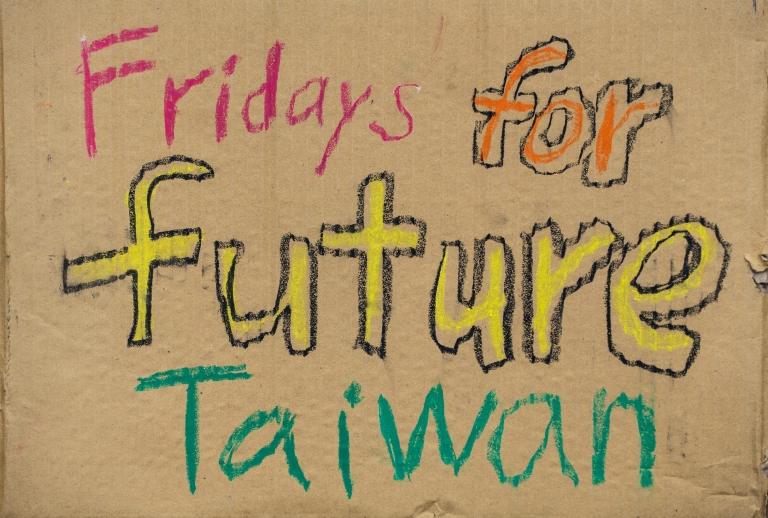 Fridays for
future
Taiwan